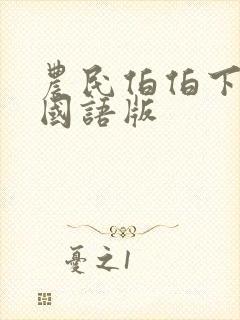 農民伯伯下
國語版
憂之1